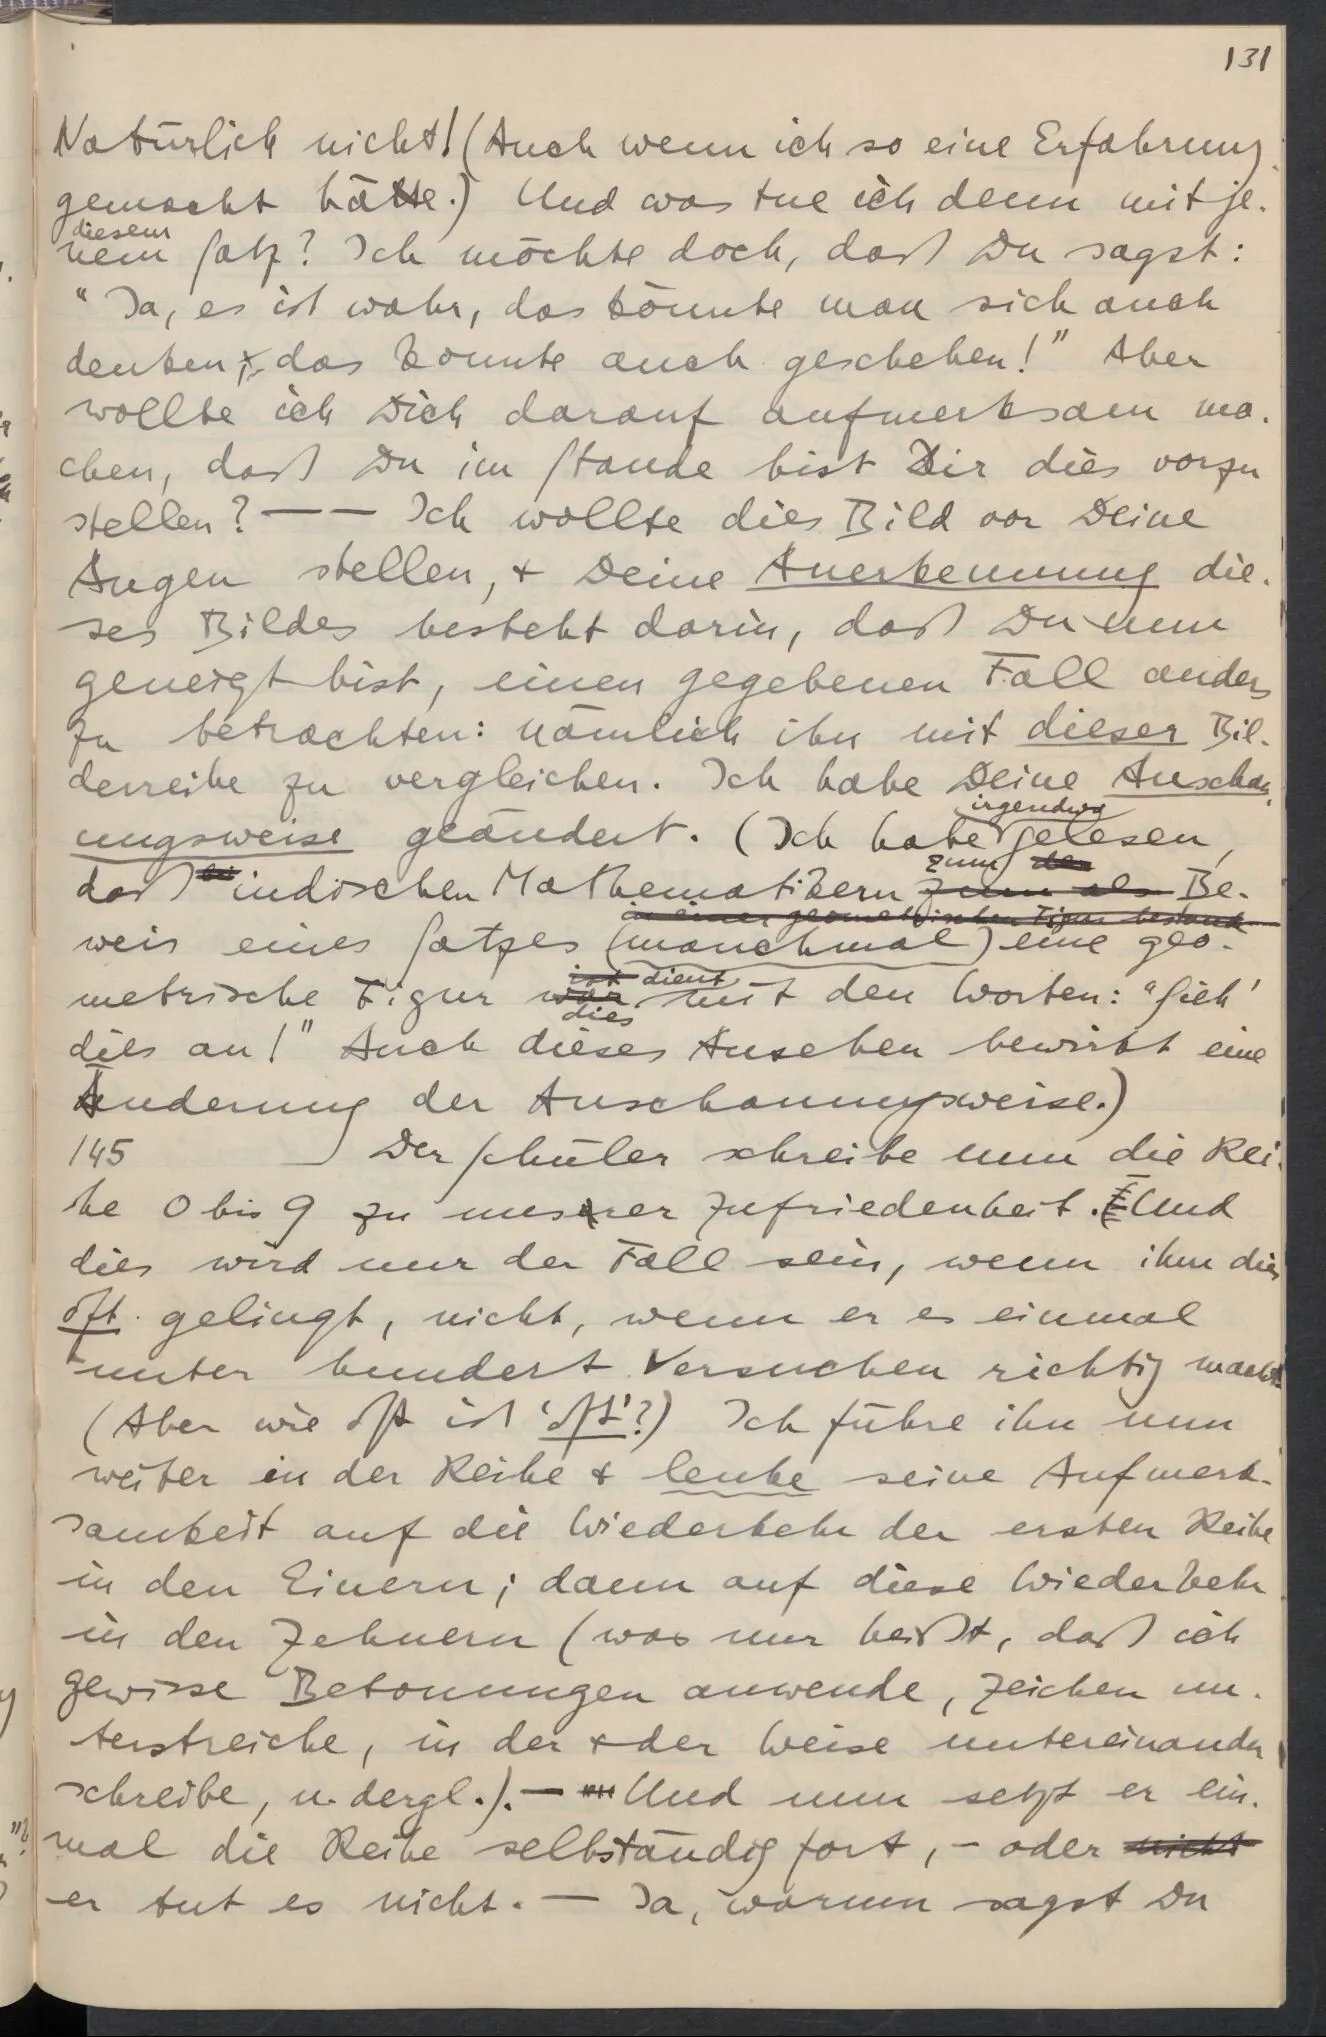 131
Natürlich nicht! (Auch wenn ich so eine Erfahrung
gemacht hätte.) Und was tue ich denn mit je-
diesem
nem Satz? Ich möchte doch, daß Du sagst:
"Ja, es ist wahr, das könnte man sich auch
denken, das könnte auch geschehen!" Aber
wollte ich Dich darauf aufmerksam ma-
chen, daß Du im Stande bist Dir dies vorzu
stellen? — — Ich wollte dies Bild vor Deine
Augen stellen, & Deine Anerkennung die-
ses Bildes besteht darin, daß Du nun
geneigt bist, einen gegebenen Fall anders
zu betrachten: nämlich ihn mit dieser Bil-
derreihe zu vergleichen. Ich habe Deine Anschau-
irgendwo
ungsweise geändert. (Ich habe gelesen,
zum der
daß bei indischen Mathematikern zum als Be-
in einer geometrischen Figur bestand
weis eines Satzes (manchmal) eine geo-
ist dient
metrische Figur war mit den Worten: "Sieh'
dies
dies an!" Auch dieses Ansehen bewirkt eine
Änderung der Anschauungsweise.)
145 Der Schüler schreibe nun die Rei-
he 0 bis 9 zu unserer Zufriedenheit. Und
dies wird nur der Fall sein, wenn ihm dies
oft gelingt, nicht, wenn er es einmal
unter hundert Versuchen richtig macht.
(Aber wie oft ist 'oft'?) Ich führe ihn nun
weiter in der Reihe & lenke seine Aufmerk-
samkeit auf die Wiederkehr der ersten Reihe
in den Einern; dann auf diese Wiederkehr
in den Zehnern (was nur heißt, daß ich
gewisse Betonungen anwende, Zeichen un-
terstreiche, in der & der Weise untereinander
schreibe, u. dergl.). — Und nun setzt er ein-
mal die Reihe selbständig fort, – oder nicht
er tut es nicht. — Ja, warum sagst Du